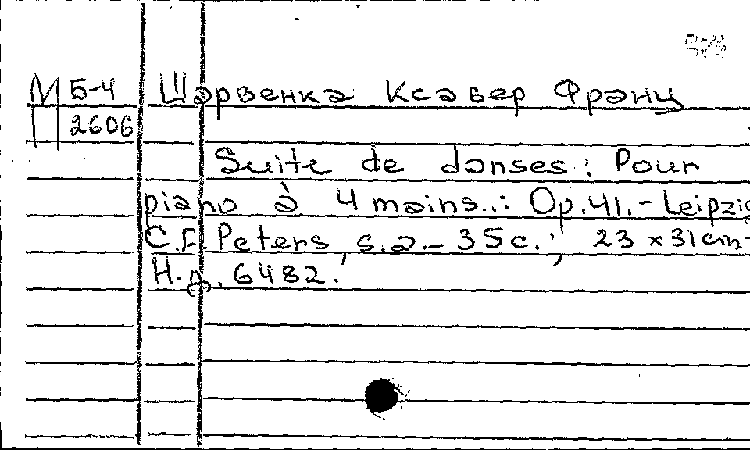 М Б-4 Шарвенка Ксавер Франц
2606
Suite de danses: Pour
piano à 4 mains..: Op.41.- Leipzig
C.F. Peters, s.a.- 35c.; 23 x 31cm-
Н.д. 6482.